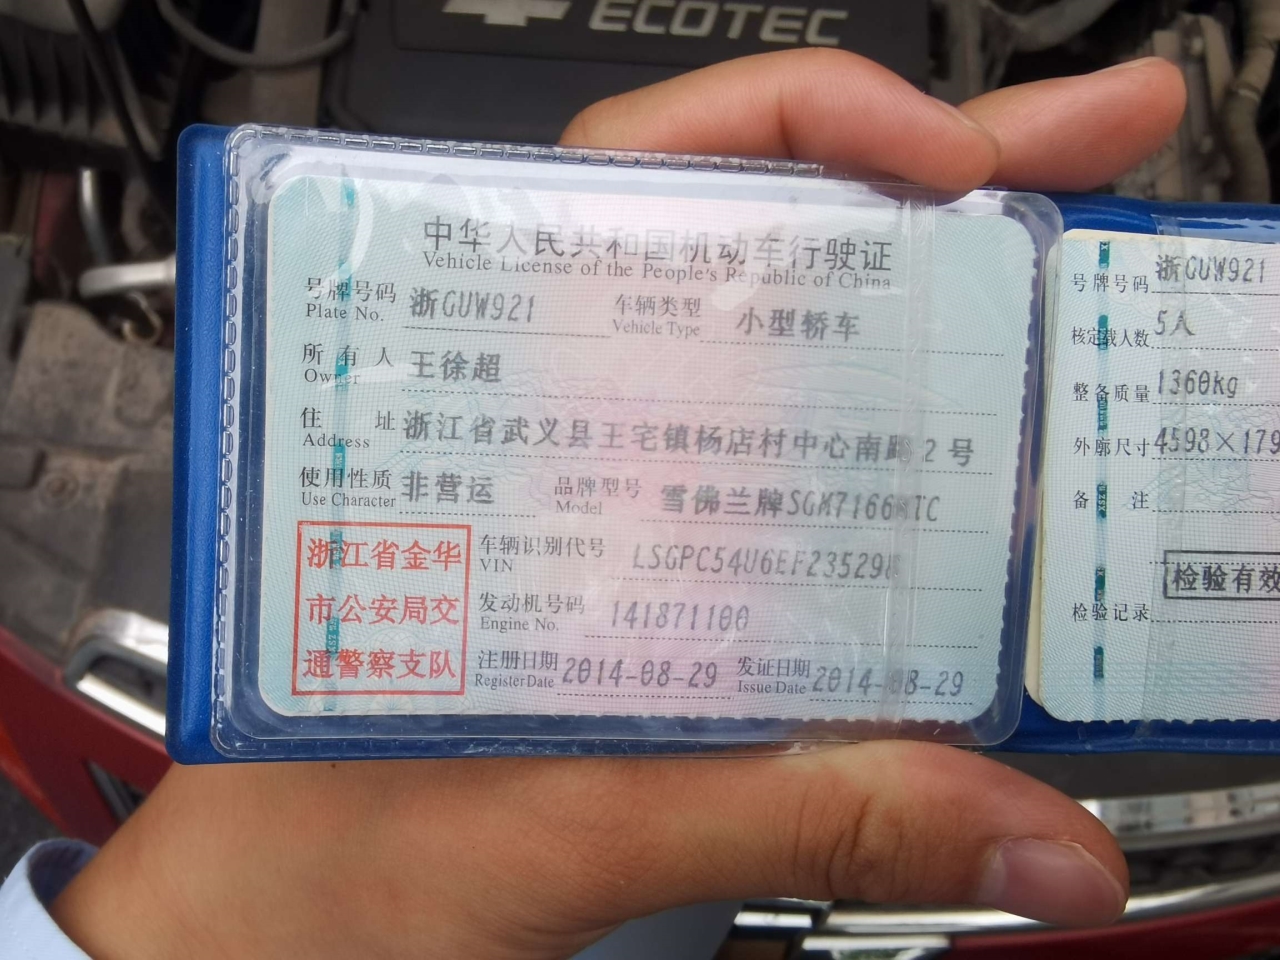 ECOTEC
中华人民共和国机动车行驶证
Vehicle License of the People's Republic of China
号牌号码 浙GUW921 车辆类型 小型轿车
Plate No. Vehicle Type
所有人 王徐超
Owner
住址 浙江省武义县王宅镇杨店村中心南路2号
Address
使用性质 非营运 品牌型号 雪佛兰牌
Use Character Model
浙江省金华
市公安局交
通警察支队
车辆识别代号
VIN
发动机号码 141871100
Engine No.
注册日期 2014-08-29 发证日期 2014-08-29
Register Date Issue Date
号牌号码 浙GUW921
核定载人数 5人
整备质量 1360kg
外廓尺寸 4598×179
备注
检验有效
检验记录